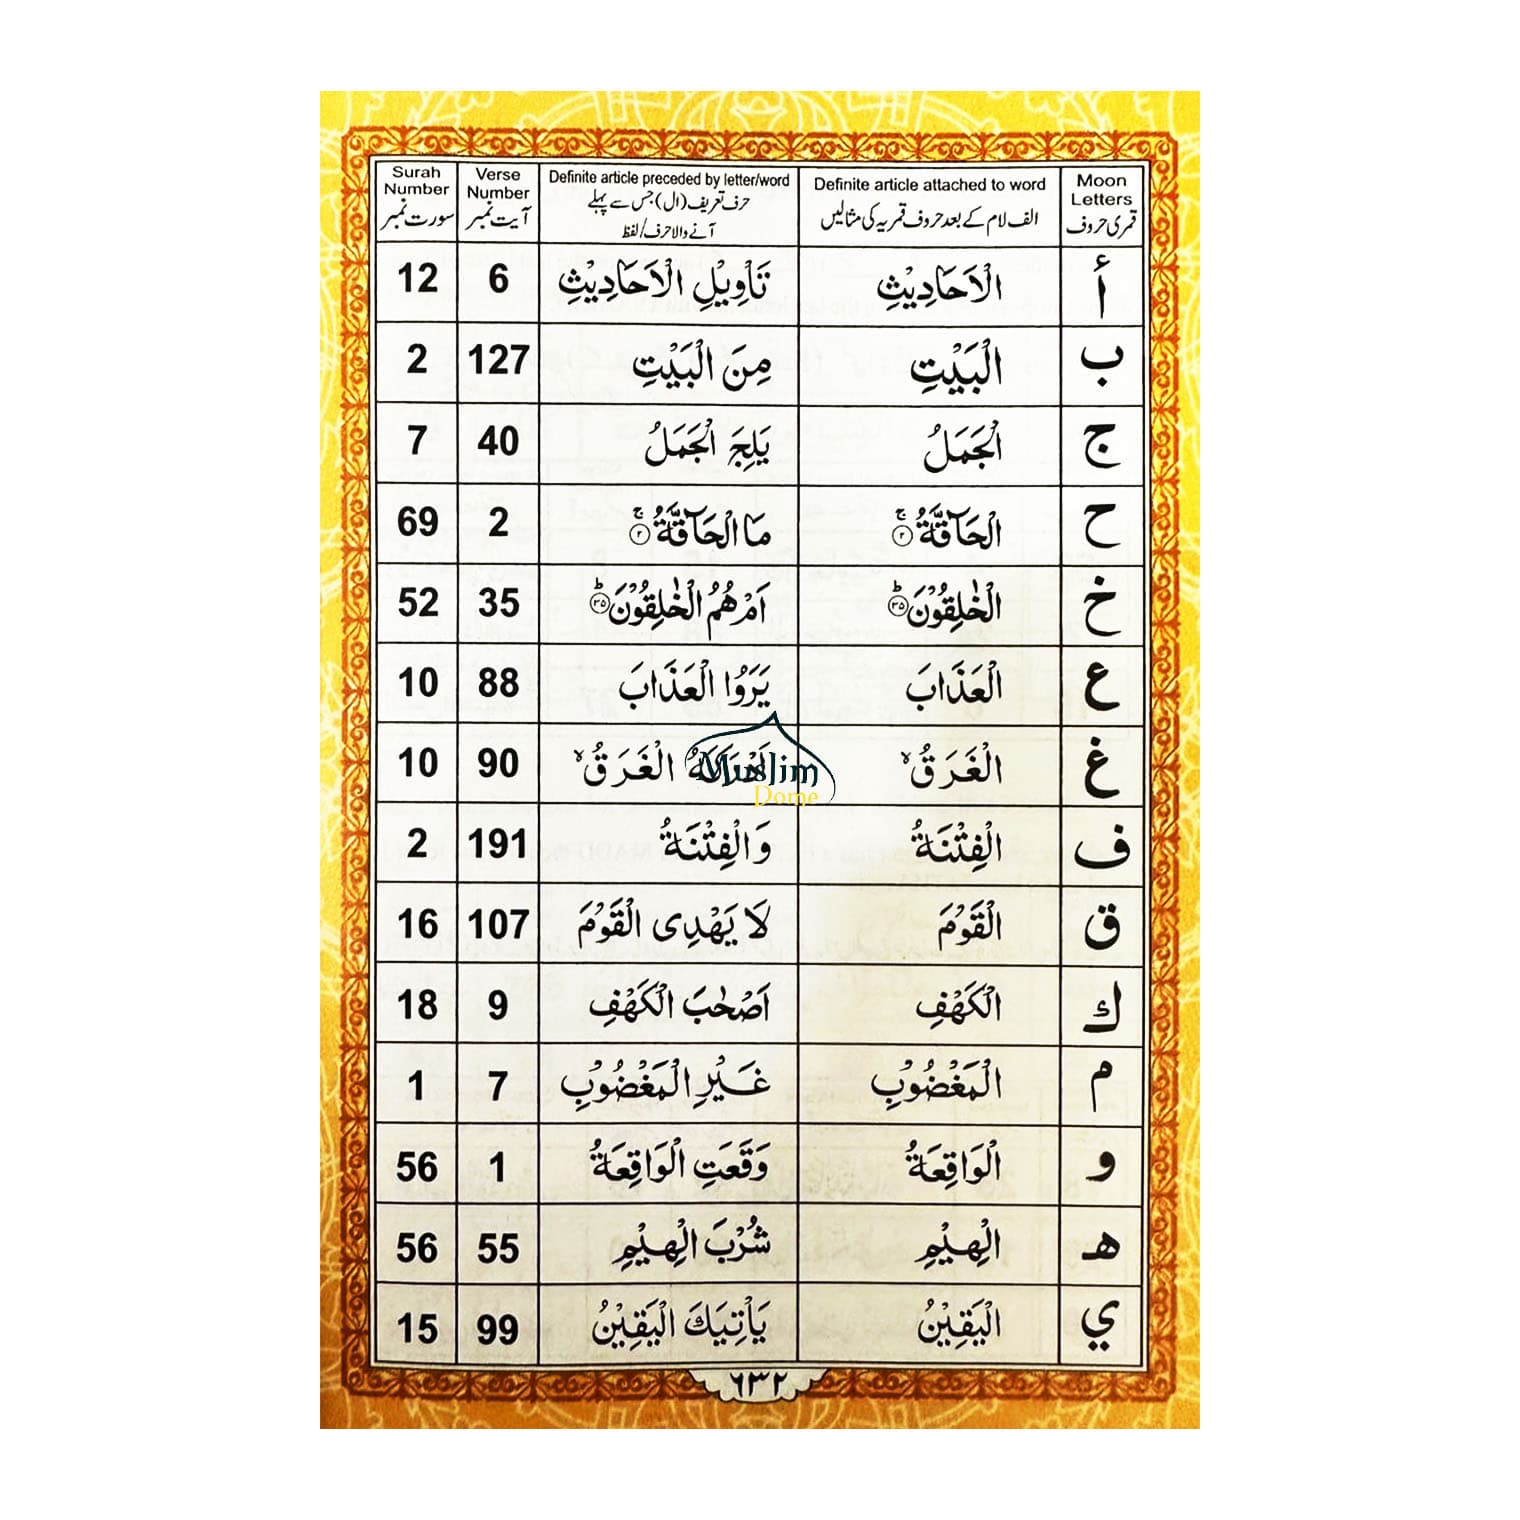 Moon Letters قمری حروف | Definite article attached to word الف لام کے بعد حروف قمریہ کی مثالیں | Definite article preceded by letter/word حرف تعریف (ال) جس سے پہلے آنے والا حرف/لفظ | Verse Number آیت نمبر | Surah Number سورت نمبر
أ الْاَحَادِيْثِ تَاْوِيْلِ الْاَحَادِيْثِ 6 12
ب الْبَيْتِ مِنَ الْبَيْتِ 127 2
ج الْجَمَلُ يَلِجَ الْجَمَلُ 40 7
ح الْحَآقَّةُ ۚ ۲ مَا الْحَآقَّةُ ۚ ۲ 2 69
خ الْخٰلِقُوْنَ ؕ ۳۵ اَمْ هُمُ الْخٰلِقُوْنَ ؕ ۳۵ 35 52
ع الْعَذَابَ يَرَوُا الْعَذَابَ 88 10
غ الْغَرَقُ ۙ الْغَرَقُ ۙ 90 10
Muslim
Dome
ف الْفِتْنَةُ وَالْفِتْنَةُ 191 2
ق الْقَوْمَ لَا يَهْدِى الْقَوْمَ 107 16
ك الْكَهْفِ اَصْحٰبَ الْكَهْفِ 9 18
م الْمَغْضُوْبِ غَيْرِ الْمَغْضُوْبِ 7 1
و الْوَاقِعَةُ وَقَعَتِ الْوَاقِعَةُ 1 56
هـ الْهِيْمِ شُرْبَ الْهِيْمِ 55 56
ي الْيَقِيْنُ يَاْتِيَكَ الْيَقِيْنُ 99 15
٦٣٢